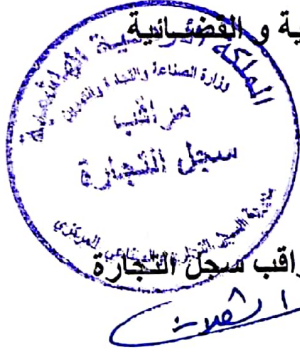 ية و القضائية
المملكة الأردنية الهاشمية
وزارة الصناعة والتجارة والتموين
مراقب
سجل التجارة
راقب سجل التجارة